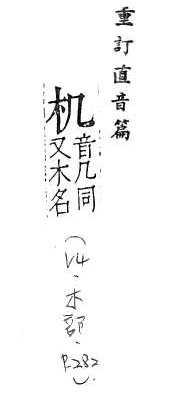 重訂直音篇
机音几同又木名
（V4．木部．P.282）